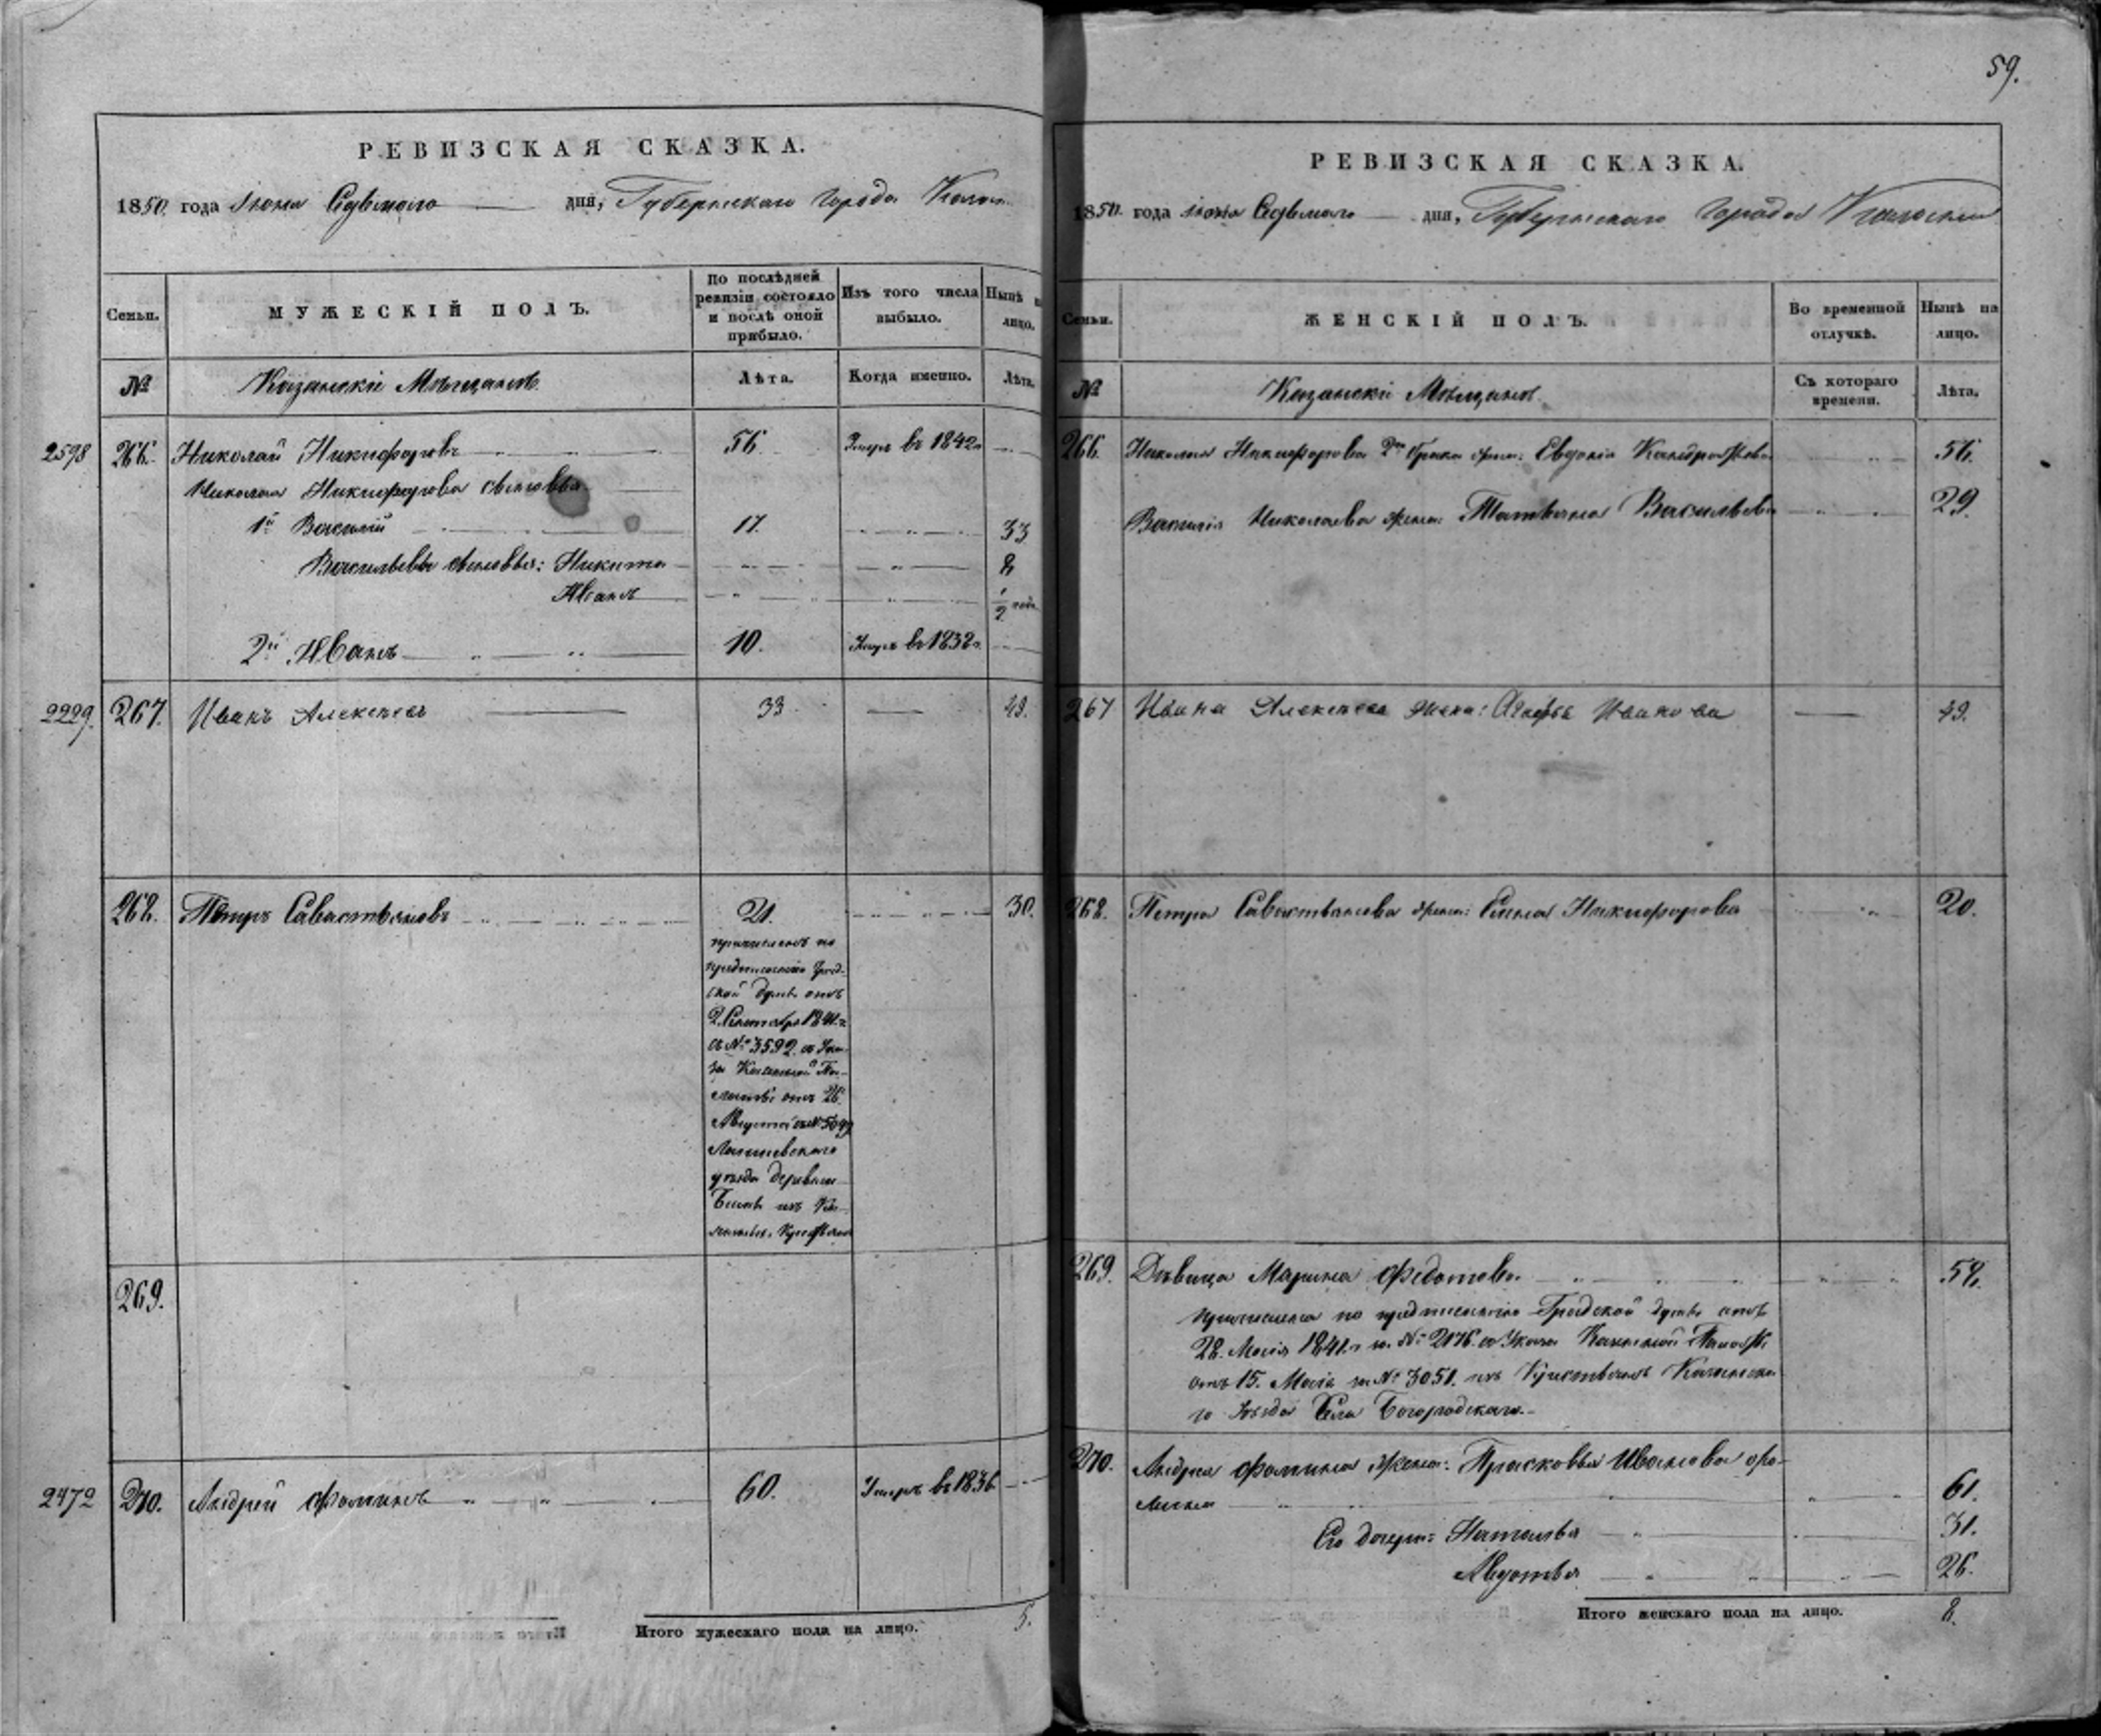 59.
РЕВИЗСКАЯ СКАЗКА.
1850. года Июня Седьмаго дня, Губернскаго города Казан
Семьи. МУЖЕСКІЙ ПОЛЪ. По послѣдней ревизіи состояло и послѣ оной прибыло. Изъ того числа выбыло. Нынѣ на лицо.
№ Казанскіе Мѣщане Лѣта. Когда именно. Лѣта.
2598 266. Николай Никифоровъ 56. Умеръ въ 1842
Николая Никифорова сыновья
1й Василій 17. 33
Васильевы сыновья: Никита 8
Иванъ 1/2 года
2й Иванъ 10. Умеръ въ 1838
2229. 267. Иванъ Алексѣевъ 33 49.
268. Петръ Савастьяновъ 21. 30.
причисленъ по
предписанію Град-
ской Думы отъ
2 Сентября 1841
за № 3592. и Ука-
за Казенной Па-
латы отъ 26.
Августа за №
Лаишевскаго
уѣзда деревни
изъ
269.
2472 270. Андрей Фоминъ 60. Умеръ въ 1836
Итого мужескаго пола на лицо. 5.
РЕВИЗСКАЯ СКАЗКА.
1850. года Июня Седьмаго дня, Губернскаго города Казани
Семьи. ЖЕНСКІЙ ПОЛЪ. Во временной отлучкѣ. Нынѣ на лицо.
№ Казанскіе Мѣщане Съ котораго времени. Лѣта.
266. Николая Никифорова 2го брака жена: Евдокія 56.
Василія Николаева жена: Татьяна Васильева 29.
267 Ивана Алексѣева жена: Агафья Иванова 49.
268. Петра Савастьянова жена: Елена Никифорова 20.
269. Дѣвица Марина Федотова 58.
причислена по предписанію Градской Думы отъ
28. Маія 1841 за № 2176. и Указа Казенной Палаты
отъ 15. Маія за № 3051. изъ Крестьянъ Казанска
го Уѣзда Села Богородскаго.
270. Андрея Фомина жена: Прасковья Иванова Фо-
мина 61.
Его дочери: Наталья 31.
Авдотья 26.
Итого женскаго пола на лицо. 8.